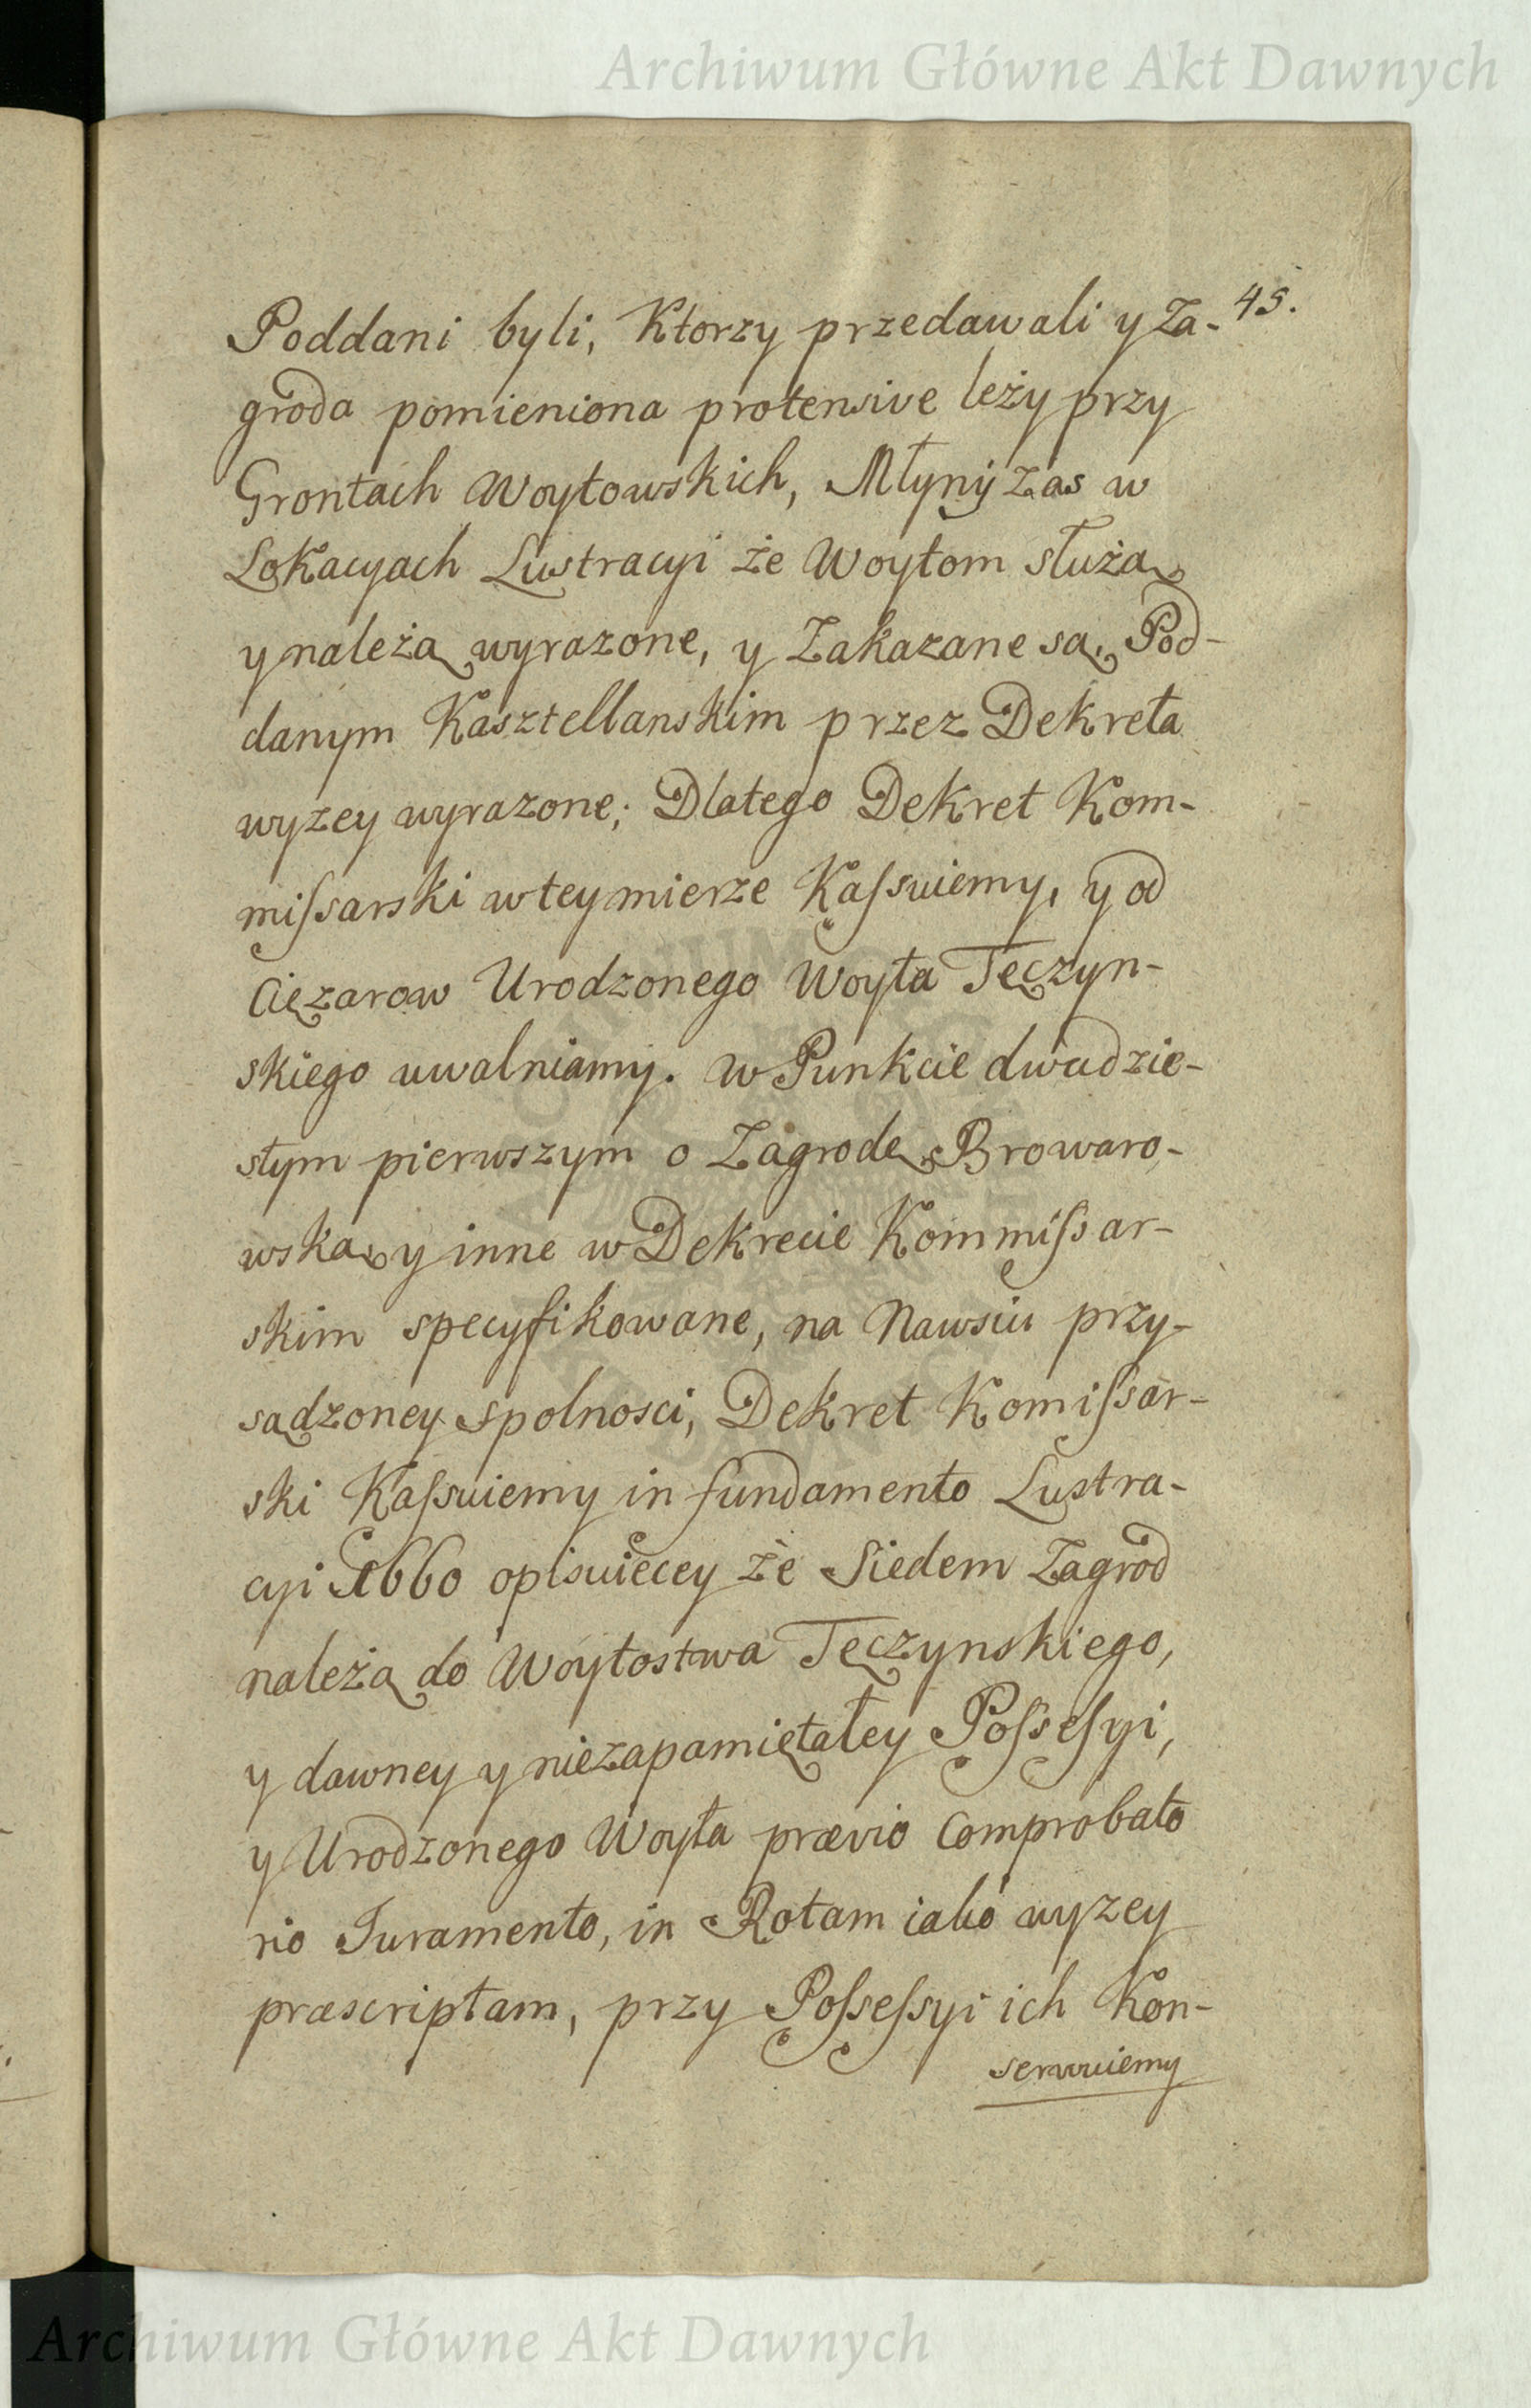 Archiwum Główne Akt Dawnych
45.
Poddani byli, Ktorzy przedawali y Za-
groda pomieniona protensive leży przy
Grontach Woytowskich, Młyny zas w
Lokacyach Lustracyi że Woytom służą
y należą wyrazone, y Zakazane są, Pod-
danym Kasztellanskim przez Dekreta
wyzey wyrazone; Dlatego Dekret Kom-
miſsarski w tey mierze Kaſsuiemy, y od
Cięzarow Urodzonego Woyta Tęczyn-
skiego uwalniamy. w Punkcie dwudzie-
stym pierwszym o Zagrodę Browaro-
wską y inne w Dekrecie Kommiſsar-
skim specyfikowane, na Nawsiu przy-
sądzoney spolnosci, Dekret Komiſsar-
ski Kaſsuiemy in fundamento Lustra-
cyi 1660 opisuiecey że Siedem Zagrod
należą do Woytostwa Tęczynskiego,
y dawney y niezapamiętałey Poſseſyi,
y Urodzonego Woyta prævio Comprobato
rio Juramento, in Rotam iako wyzey
præscriptam, przy Poſseſsyi ich Kon-
serwuiemy
Archiwum Główne Akt Dawnych